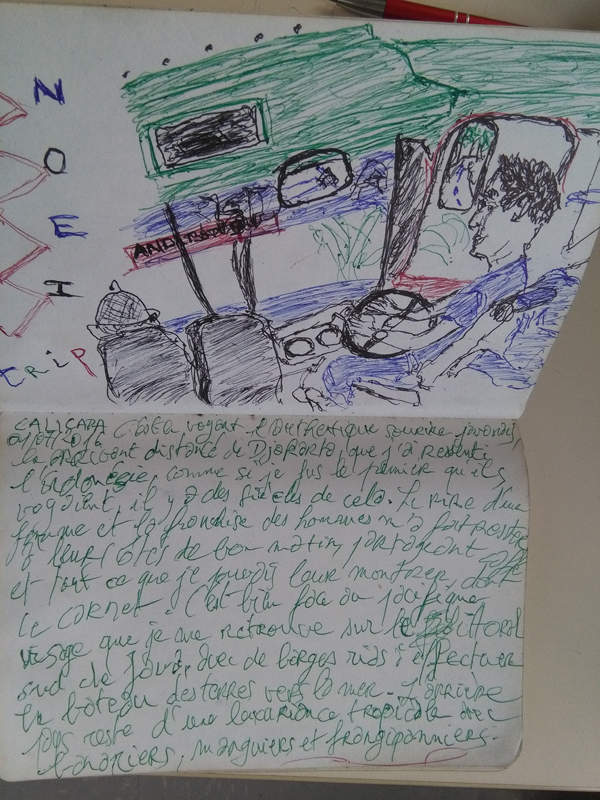 N
O
E
I
TRIP
CALIÇARA C'est en voyant l'authentique sourire javanais,
août 2016 la distant de Djakarta, que j'ai ressenti
l'Indonésie, comme si je fus le premier qu'ils
voyaient il y a des siècles de cela. Le rire d'une
époque et la franchise des hommes m'a fait rester
à leur côtés de bon matin, partageant café
et tout ce que je pouvais leur montrer, dont
le carnet. C'est bien face au pacifique
visage que je me retrouve sur le littoral
sud de Java, avec de larges rias à effectuer
en bateau des terres vers la mer. L'arrière
pays reste d'une luxuriance tropicale avec
bananiers, manguiers et frangipanniers.